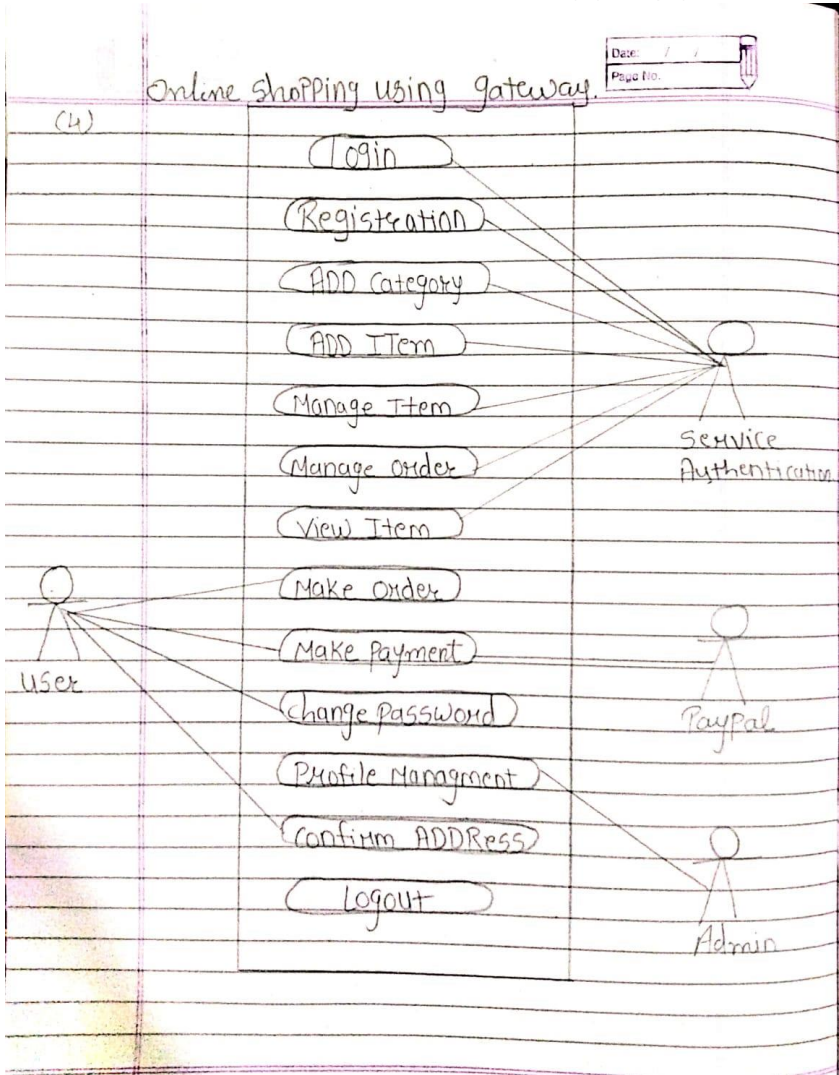 Date: / /
Page No.
Online shopping using gateway.
(4)
Login
Registration
ADD Category
ADD ITem
Manage Item
Manage order
View Item
Make order
Make Payment
Change Password
Profile Managment
Confirm ADDRess
Logout
Service
Authentication
User
Paypal
Admin